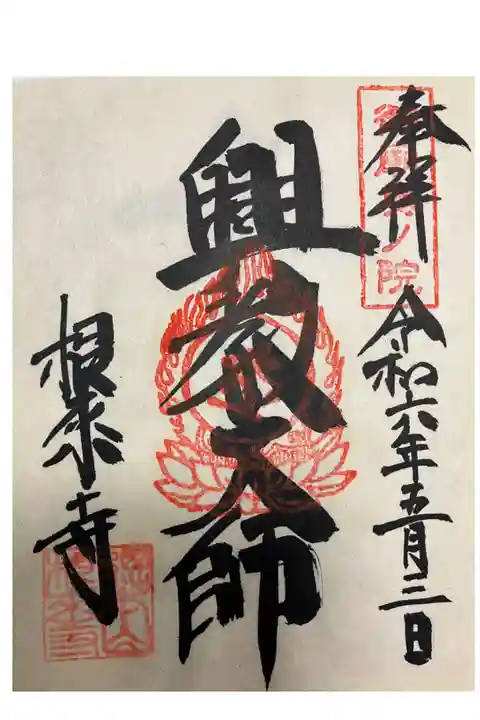 奉拝
令和六年五月三日
興教大師
根来寺
奥ノ院